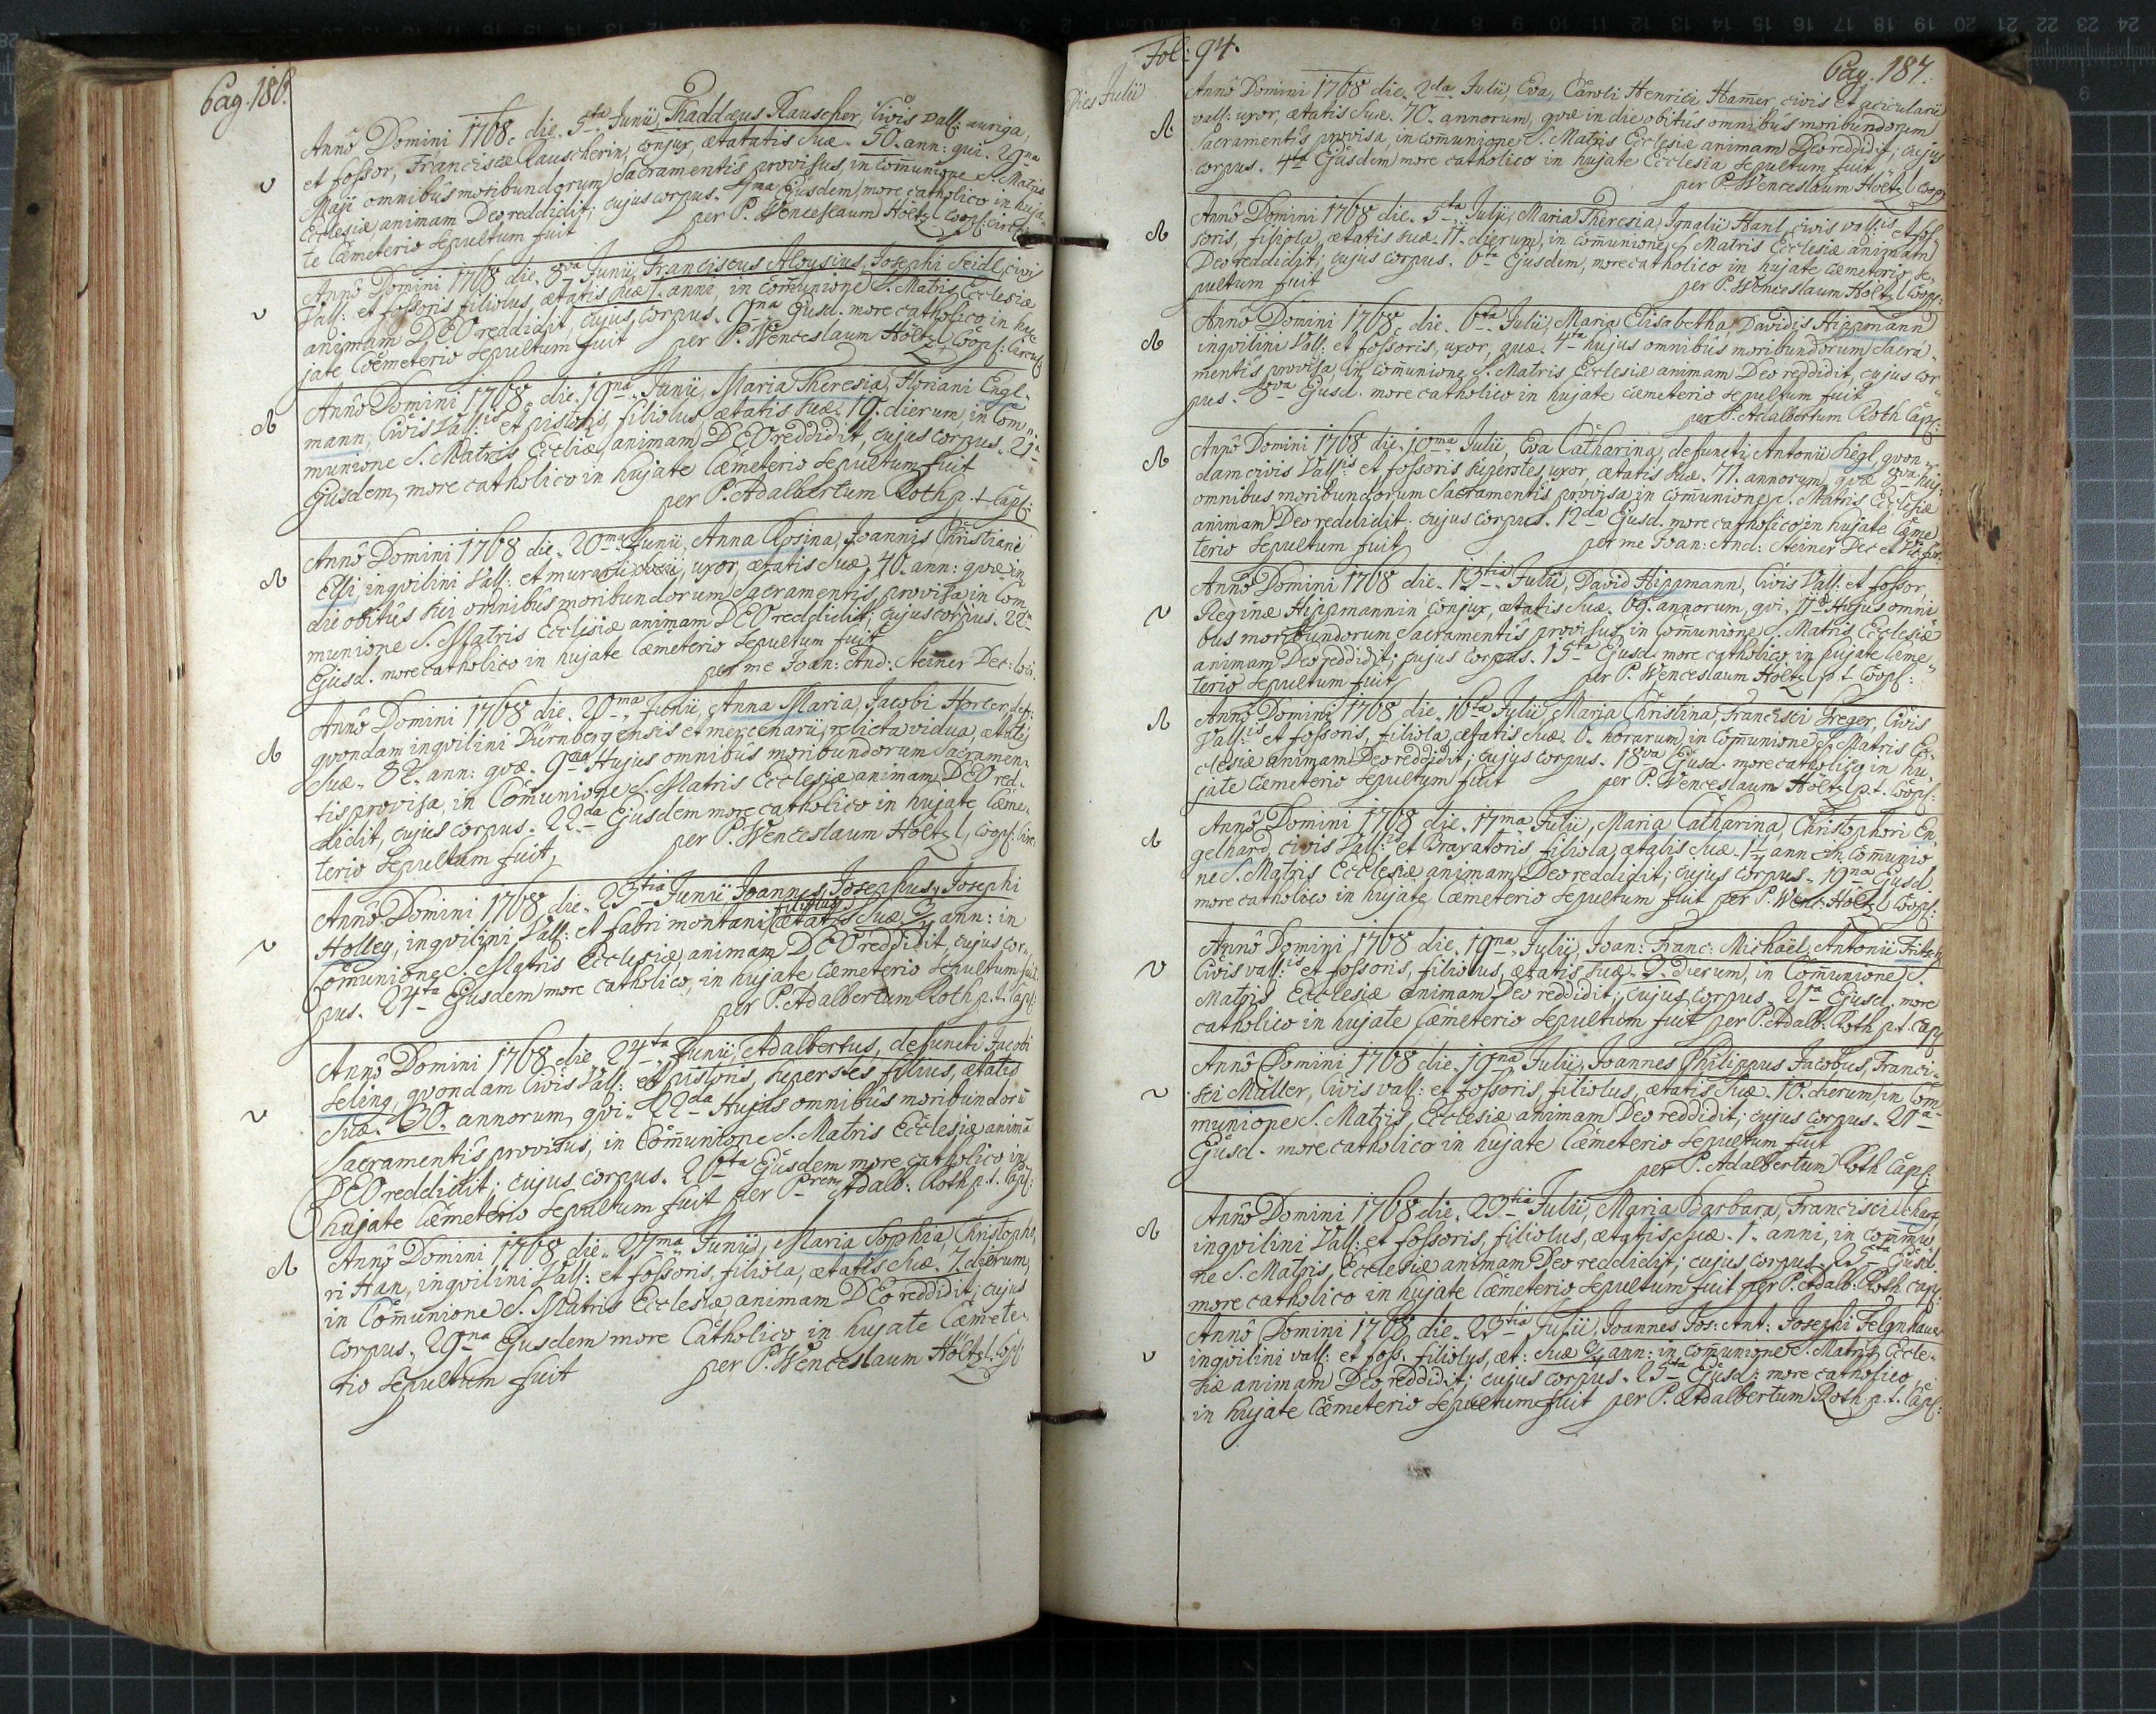 Pag. 186.
Annô Domini 1768 die. 5ta Junii, Thaddæus Rauscher, Civis vall: auriga,
et fossor, Franciscæ Rauscherin, conjux, ætatatis Suæ. 50. ann: qui. 29na
Maji omnibûs moribundorum Sacramentis provisus, in Com̄unione S. Matris
Ecclesiæ, animam Deo reddidit; cujus corpus. 7ma Ejusdem, more catholico in huja
te Cæmeterio Sepultum fuit per P. Wenceslaum Höltzl Coop:
Annô Domini 1768 die. 8va Junii, Franciscus Aloysius, Josephi Seidl, civi
Vall: et fossoris filiolus, ætatis suæ 1. anni, in com̄unione S. Matris Ecclesiæ
animam DEO reddidit, cujus corpus. 9na Ejusd. more catholico in hu
jate Coemeterio Sepultum fuit per P. Wenceslaum Höltzl, Coop:
Annô Domini 1768, die. 19na Junii, Maria Theresia, Floriani Engl-
mann, Civis Vall:is et pistoris, filiolus, ætatis suæ. 19. dierum, in Com
munione S. Matris Eccliæ, animam DEO reddidit, cujus corpus. 21a
Ejusdem, more catholico in hujate Cæmeterio Sepultum fuit
per P. Adalbertum Roth p. t. Capl:
Annô Domini 1768 die. 20ma Junii, Anna Rosina, Joannis Christiani
Elli, inqvilini Vall: et murarii, uxor, ætatis Suæ, 40. ann: qvæ in
die obitûs sui omnibûs moribundorum Sacramentis, provisa in Com
munione S. Matris Ecclesiæ animam DEO reddidit, cujus corpus. 22
Ejusd. more catholico in hujate Cæmeterio Sepultum fuit
per me Joan: And: Steiner Dec:
Annô Domini 1768 die. 20ma Junii, Anna Maria, Jacobi Horler, def:
qvondam inqvilini Dürnbergensis et mercenarii, relicta vidua, ætatis
Suæ. 82. ann: qvæ. 9na Hujus omnibûs moribundorum Sacramen-
tis provisa, in Com̄unione S. Matris Ecclesiæ animam DEO red-
didit, cujus corpus. 22da Ejusdem more catholico in hujate Cæme-
terio Sepultum fuit, per P. Wenceslaum Höltzl, Coop:
Annô Domini 1768, die. 23tia Junii Joannes Josephus, Josephi
filiolus
Holley, inqvilini Vall: et fabri montani ætatis Suæ 3/4 ann: in
Com̄unione S. Matris Ecclesiæ, animam DEO reddidit, cujus cor-
pus. 24ta Ejusdem more catholico, in hujate Cæmeterio Sepultum fuit
per P. Adalbertum Roth p. t. Capl:
Annô Domini 1768 die 24ta Junii, Adalbertus, defuncti Jacobi
Seling, qvondam Civis Vall: et pistoris, superstes filius, ætatis
Suæ. 30. annorum, qvi. 22da Hujus omnibûs moribundorū
Sacramentis provisus, in Com̄unione S. Matris Ecclesiæ animā
DEO reddidit; cujus corpus. 26ta Ejusdem more catholico in
hujate Cæmeterio Sepultum fuit per Prem Adalb: Roth p. t. Capl:
Annô Domini 1768 die. 27ma Junii, Maria Sophia, Christopho,
ri Han, inqvilini Vall: et fossoris, filiola, ætatis Suæ. 7. dierum,
in Com̄unione S. Matris Ecclesiæ animam DEo reddidit; cujus
corpus. 29na Ejusdem more Catholico in hujate Cæmete-
rio Sepultum fuit per P. Wenceslaum Höltzl. Cop:
Fol: 94. Pag. 187.
Dies Julii
Annô Domini 1768 die. 2da Julii, Eva, Caroli Henrici Ham̄er, civis et acicularii
vall: uxor, ætatis Suæ. 70. annorum, qvæ in die obitûs omnibûs moribundorum
Sacramentis provisa, in com̄unione S. Matris Ecclesiæ animam Deo reddidit; cujus
corpus. 4ta Ejusdem more catholico in hujate Ecclesia Sepultum fuit
per P. Wenceslaum Höltzl Coop:
Annô Domini 1768 die. 5ta Julii, Maria Theresia, Ignatii Hanl, civis vall:is et fos
soris, filiola, ætatis suæ. 11. dierum, in com̄unione S. Matris Ecclesiæ animam
Deo reddidit; cujus corpus. 6ta Ejusdem, more catholico in hujate cæmeterio se-
pultum fuit per P. Wenceslaum Höltzl Coop:
Annô Domini 1768 die. 6ta Julii, Maria Elisabetha, Davidis Hippmann
inqvilini Vall: et fossoris, uxor, quæ. 4ta hujus omnibûs moribundorum Sacra-
mentis provisa, in com̄unione S. Matris Ecclesiæ animam Deo reddidit, cujus cor
pus. 8va Ejusd. more catholico in hujate cæmeterio sepultum fuit
per P. Adalbertum Roth Capl:
Annô Domini 1768 die. 10ma Julii, Eva Catharina, defuncti Antonii Siegl qvon-
dam civis Vall:is et fossoris superstes, uxor, ætatis suæ. 71. annorum, qvæ 8va huj:
omnibus moribundorum Sacramentis provisa in com̄unione S. Matris Ecclesiæ
animam Deo reddidit; cujus corpus. 12da Ejusd. more catholico in hujate Cæme
terio Sepultum fuit per me Joan: And: Steiner Dec et
Annô Domini 1768 die. 13tia Julii, David Hippmann, Civis Vall: et fossor,
Reginæ Hippmannin Conjux, ætatis Suæ. 69. annorum, qvi. 11a Hujus omni
bus moribundorum Sacramentis provisus in Com̄unione S. Matris Ecclesiæ
animam Deo reddidit; cujus corpus. 15ta Ejusd. more catholico in hujate Cæme-
terio Sepultum fuit per P. Wenceslaum Höltzl p. t. Coop:
Annô Domini 1768 die. 16ta Julii, Maria Christina, Francisci Greger, Civis
Vall:is et fossoris, filiola, ætatis Suæ. 6. horarum, in Com̄unione S. Matris Ec-
clesiæ animam Deo reddidit; cujus corpus. 18va Ejusd. more catholico in hu-
jate Cæmeterio Sepultum fuit per P. Wenceslaum Höltzl p. t. Coop:
Annô Domini 1768 die. 17ma Julii, Maria Catharina, Christophori En
gelhard, civis Vall:is et Braxatoris filiola, ætatis Suæ. 1 1/2 ann in Com̄unio
ne S. Matris Ecclesiæ animam Deo reddidit; cujus corpus. 19na Ejusd.
more catholico in hujate Cæmeterio Sepultum fuit per P. Wenc: Höltzl Coop:
Annô Domini 1768 die. 19na Julii, Joan: Franc: Michaël, Antonii Fritsch,
Civis vall:is et fossoris, filiolus, ætatis suæ. 3. Dierum, in Com̄unione S.
Matris Ecclesiæ animam Deo reddidit; cujus corpus. 21a Ejusd. more
catholico in hujate Cæmeterio Sepultum fuit per P. Adalb: Roth p. t. Cap:
Annô Domini 1768 die. 19na Julii, Joannes Philippus Jacobus, Franci-
sci Müller, Civis vall: et fossoris, filiolus, ætatis Suæ. 10. dierum, in Com
munione S. Matris, Ecclesiæ animam Deo reddidit; cujus corpus. 21a
Ejusd. more catholico in hujate Cæmeterio Sepultum fuit
per P. Adalbertum Roth Capl:
Annô Domini 1768 die. 23tia Julii, Maria Barbara, Francisci
inqvilini Vall: et fossoris, filiolus, ætatis Suæ. 1. anni, in com̄unio
ne S. Matris, Ecclesiæ animam Deo reddidit; cujus corpus. 25ta Ejusd.
more catholico in hujate Cæmeterio Sepultum fuit per P. Adalb: Roth Cap:
Annô Domini 1768 die. 23tia Julii, Joannes Jos: Ant: Josephi Felgnhauer
inqvilini vall: et foss. filiolus, æt: Suæ 3/4 ann: in com̄unione S. Matris Eccle-
siæ animam Deo reddidit; cujus corpus. 25ta Ejusd: more catholico
in hujate Cæmeterio Sepultum fuit per P. Adalbertum Roth p. t. Capl: